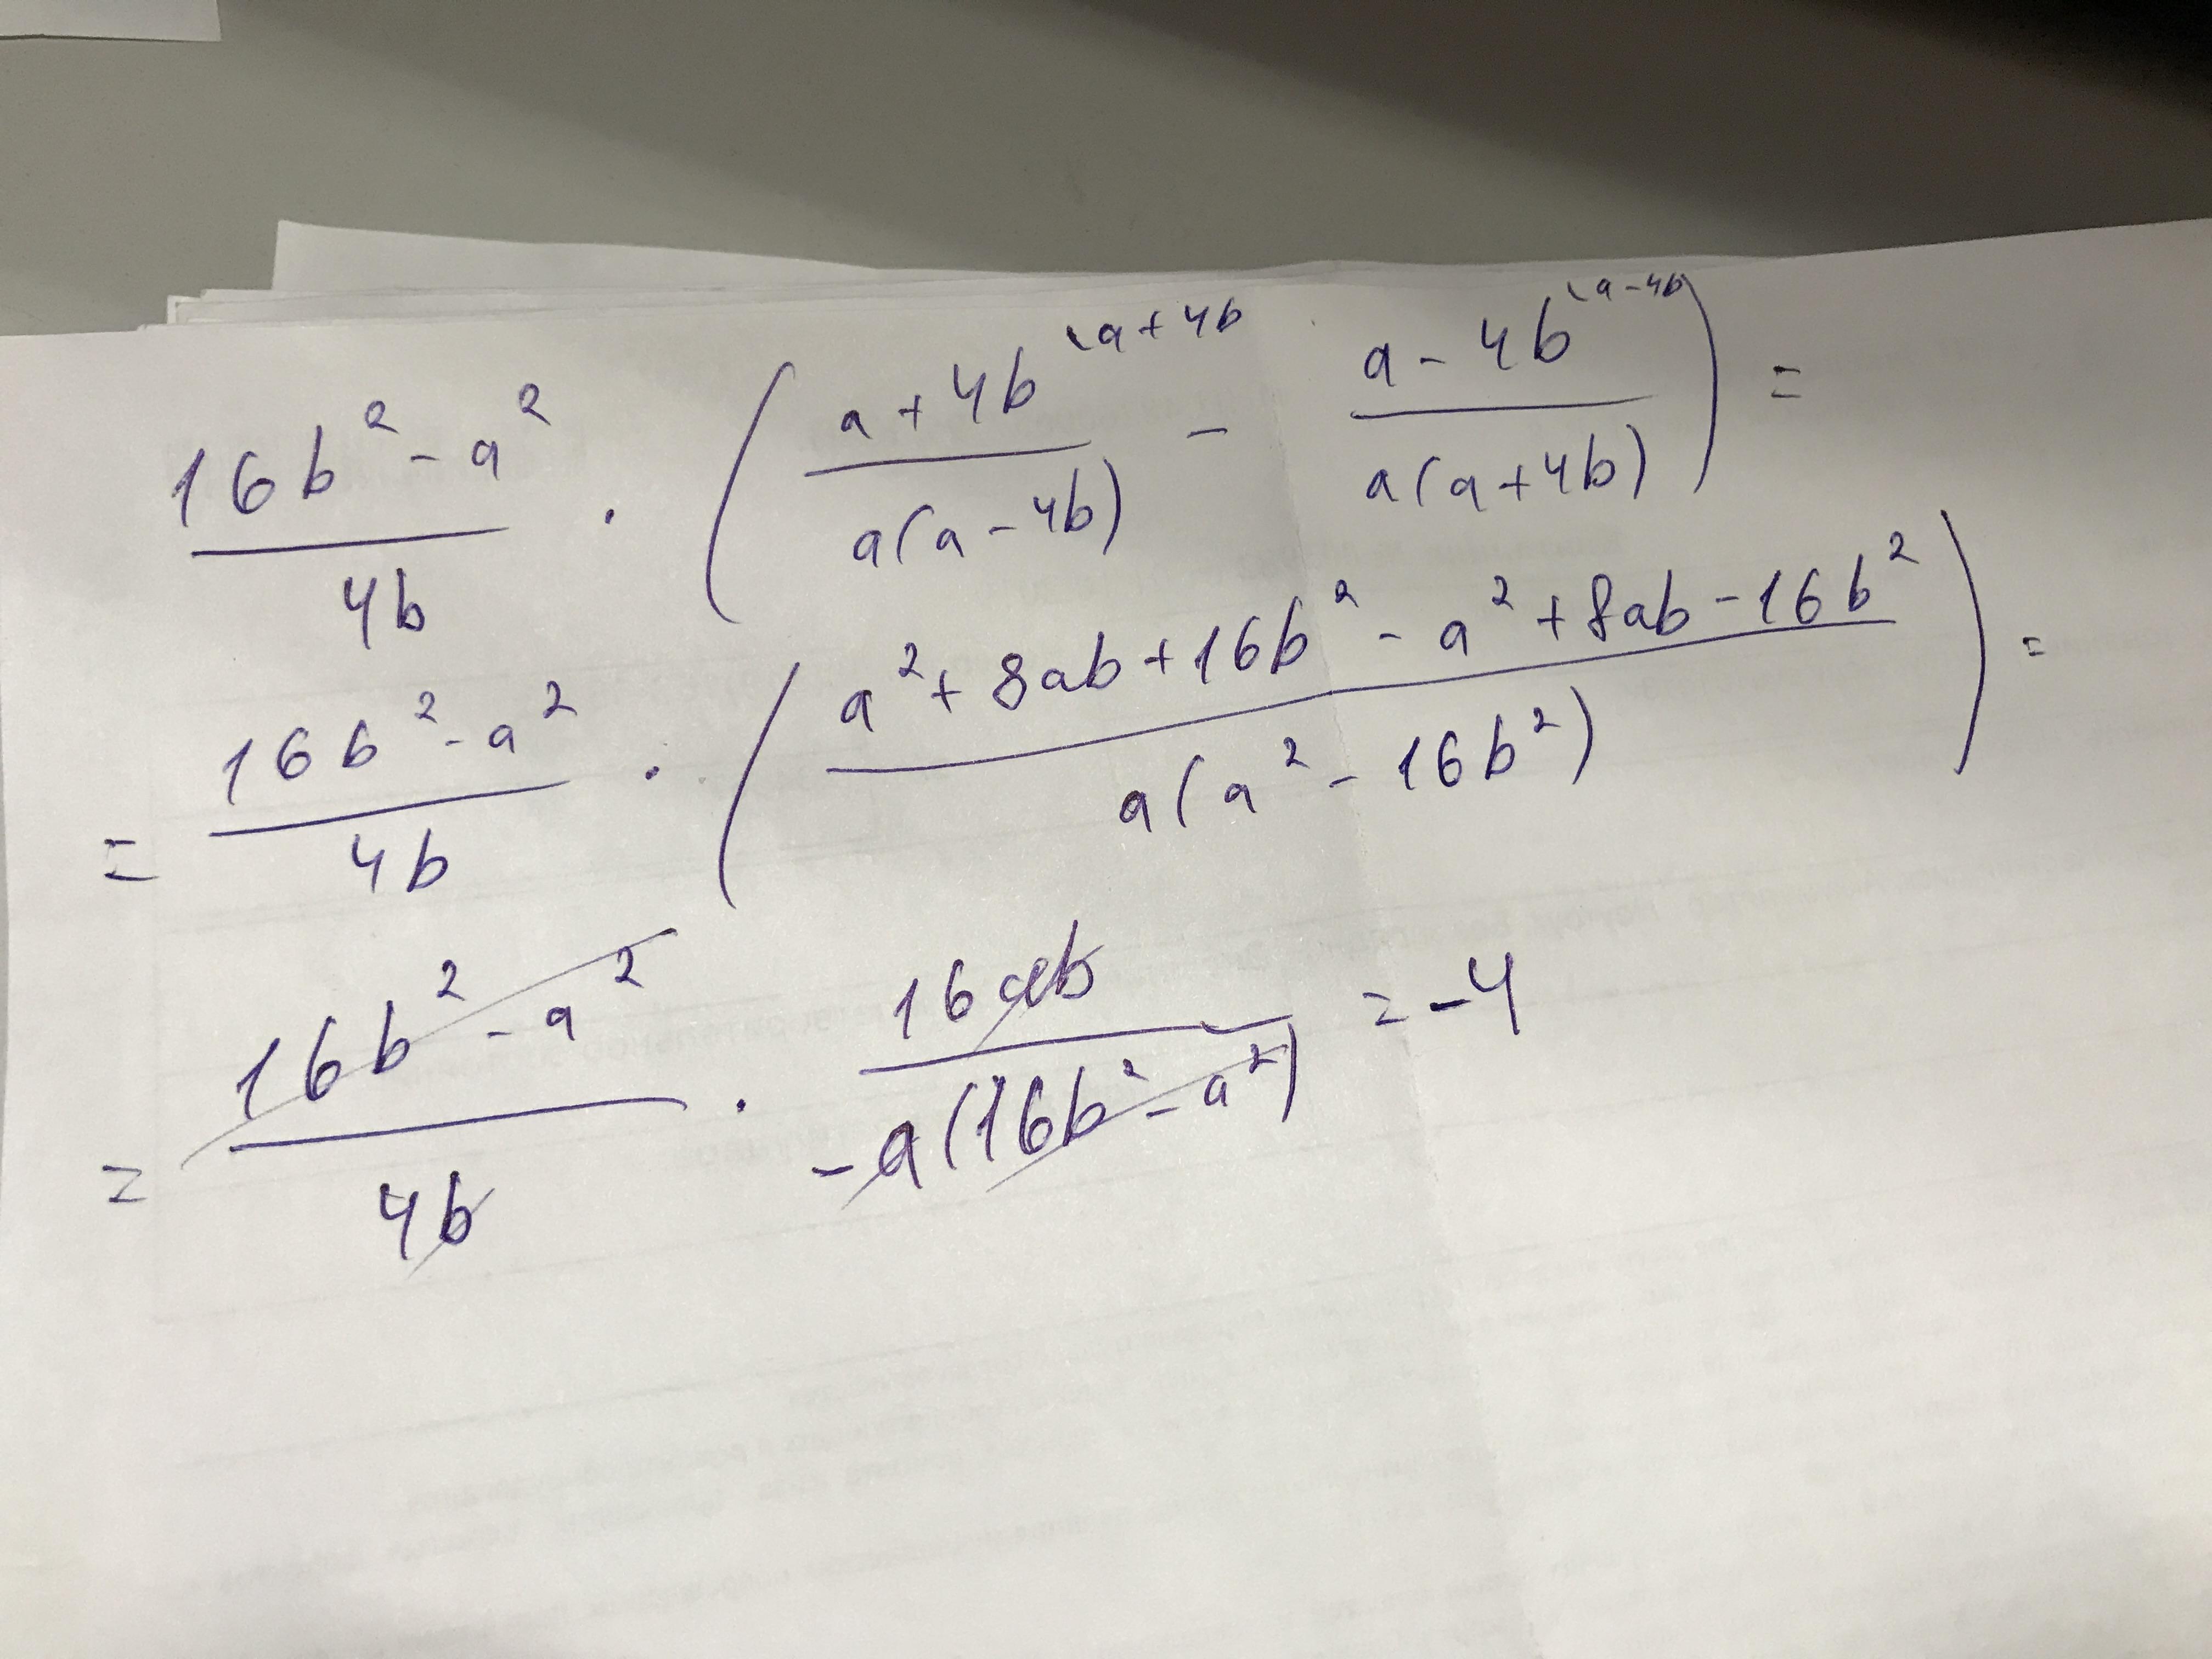 (16b² - a²)/(4b) · ((a + 4b)^(\a + 4b)/(a(a - 4b)) - (a - 4b)^(\a - 4b)/(a(a + 4b))) =
= (16b² - a²)/(4b) · ((a² + 8ab + 16b² - a² + 8ab - 16b²)/(a(a² - 16b²))) =
= (16b² - a²)/(4b) · (16ab)/(-a(16b² - a²)) = -4